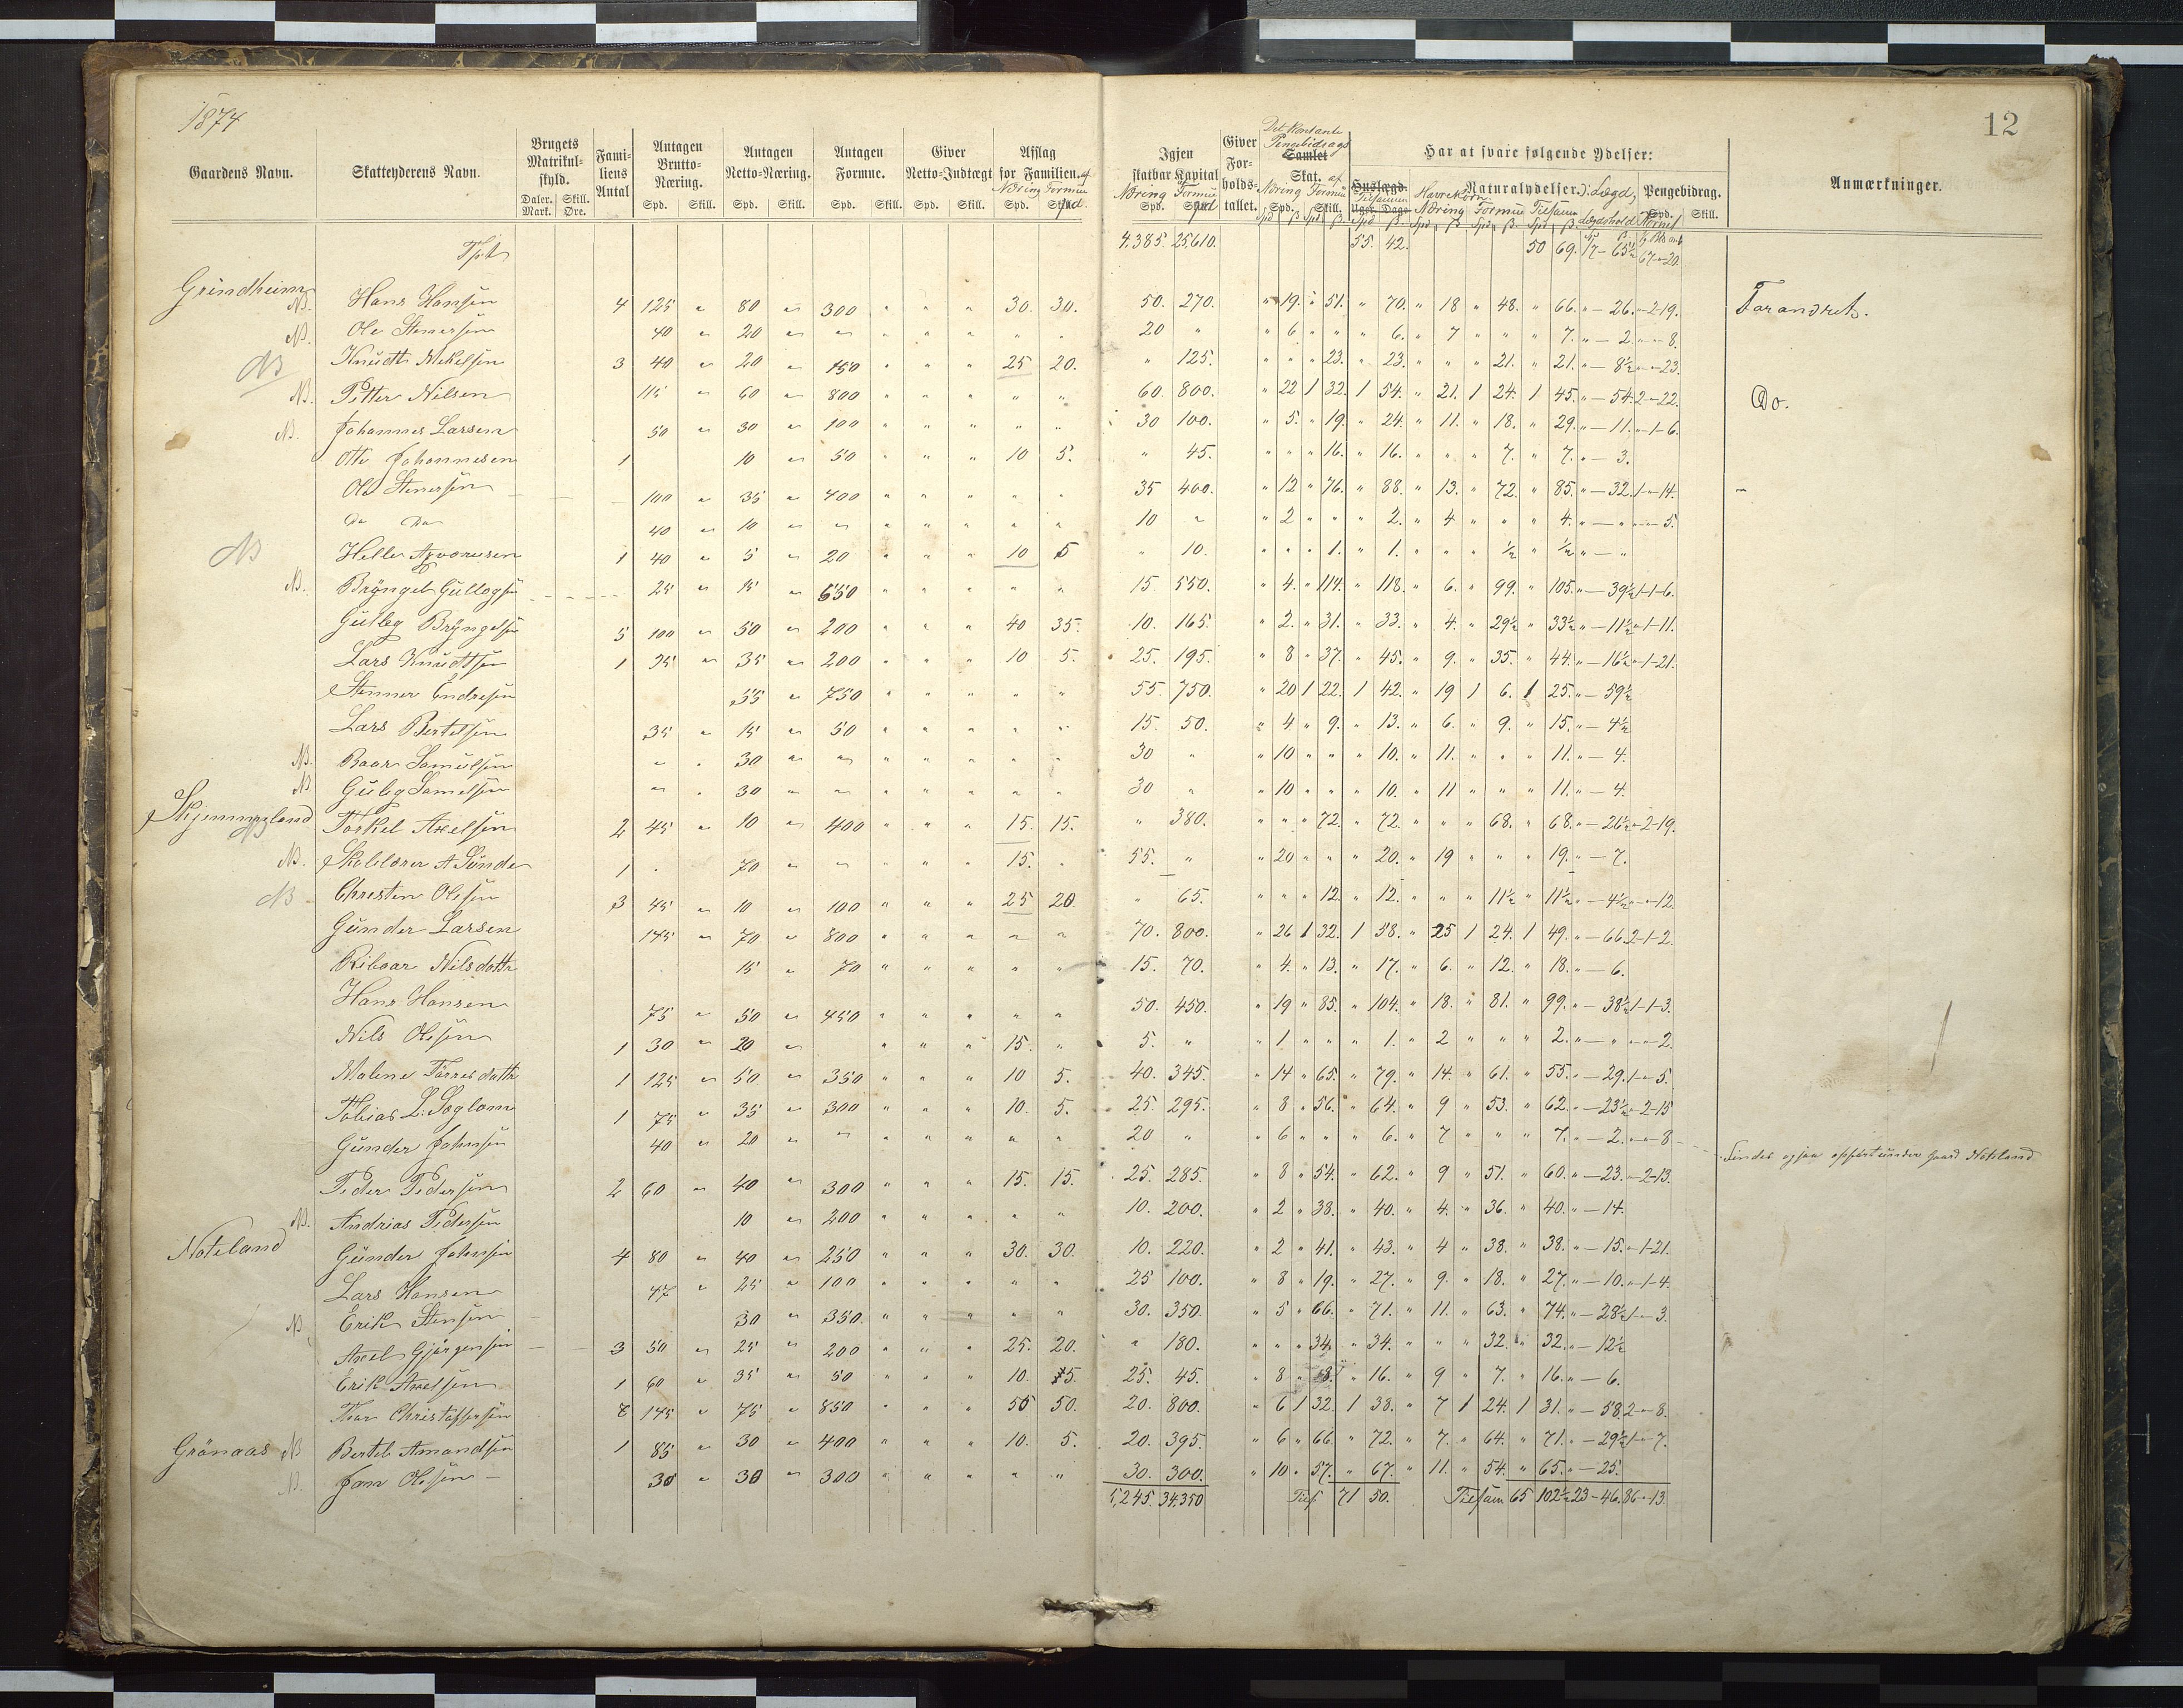 1874
12
Gaardens Navn. Skatteyderens Navn. Brugets Matrikulskyld. Daler. Mark. Skill. Øre. Familiens Antal Antagen Brutto-Næring. Spd. Skill. Antagen Netto-Næring. Spd. Skill. Antagen Formue. Spd. Skill. Giver Netto-Indtægt Spd. Skill. Afslag for Familien. af Næring Formue Spd. Spd.
Igjen skatbar Kapital Næring Formue Spd. Spd. Giver Forholdstallet. Det Kontante Pengebidrags Samlet Skat. af Næring Formue Spd. Skill. Huslægd. Tilsammen Uger. Dage Har at svare følgende Ydelser: Naturalydelser. Havrekorn Næring Formue Tilsam Lægd, Lægdshold Pengebidrag. Spd. Skill. Kornet Anmærkninger.
Tpt 4,385. 25610. 55. 42. 50 69. 17-65½ 67-20.
Grindheim N. Hans Hansen 4 125 " 80 " 300 " " " 30. 30. 50. 270. " 19. " 51. " 70. " 18 " 48. " 66. " - 26. "-2-19. Farandret.
N. Ole Stenersen 40 " 20 " " " " " " " 20 " " 6 " " " 6. " 7 " " " 7. " - 2. "-"-8.
NB Knudt Mikelsen 3 40 " 20 " 150 " " " 25 20. " 125. " " " 23. " 23. " " " 21. " 21. " - 8½ "-"-23.
N. Petter Nilsen 115 " 60 " 800 " " " " " 60. 800. " 22 1 32. 1 54. " 21. 1 24. 1 45. " - 54. 2-"-22. Do.
N. Johannes Larsen 50 " 30 " 100 " " " " " 30 100. " 5. " 19. " 24. " 11. " 18. " 29. " - 11. "-1-6.
Otte Johannesen 1 10 " 50 " " " 10 5. " 45. " " " 16. " 16. " " " 7. " 7. " - 3.
Ole Stenersen 100 " 35 " 400 " " " " " 35 400. " 12 " 76. " 88. " 13. " 72. " 85. " - 32. 1-"-14.
do do 40 " 10 " " " " " " " 10 " " 2 " " " 2. " 4 " " " 4. " - " "-"-5.
NB Helle 1 40 " 5 " 20 " " " 10 5 " 10. " " " 1. " 1. " " " ½ " ½ " - "
N. Bryngel Gullegsen 25 " 15 " 650 " " " " " 15. 550. " 4. " 114. " 118. " 6. " 99. " 105. " - 39½ 1-1-6.
Gulleg Bryngelsen 5 100 " 50 " 200 " " " 40 35. 10. 165. " 2. " 31. " 33. " 4. " 29½ " 33½ " - 11½ "-1-11.
Lars Knudtsen 1 95 " 35 " 200 " " " 10 5. 25. 195. " 8 " 37. " 45. " 9. " 35. " 44. " - 16½ "-1-21.
Stenner Endresen 55 " 750 " " " " " 55. 750. " 20 1 22. 1 42. " 19 1 6. 1 25. " - 59½
Lars Bertelsen 35 " 15 " 50 " " " " " 15. 50. " 4 " 9. " 13. " 6. " 9. " 15. " - 4½
N. Roar Samuelsen " " 30 " " " " " " " 30 " " 10 " " " 10. " 11. " " " 11. " - 4.
N Guleg Samelsen " " 30 " " " " " " " 30 " " 10 " " " 10. " 11 " " " 11. " - 4.
Skjeminggland Torkel Axelsen 2 45 " 10 " 400 " " " 15. 15. " 380. " " " 72. " 72. " " " 68. " 68. " - 26½ "-2-19.
N. Skolelærer A Sunde 1 " 70 " " " " " 15. " 55. " " 20 " " " 20. " 19 " " " 19. " - 7.
NB Christen Olesen 3 45 " 10 " 100 " " " 25 20. " 65. " " " 12. " 12. " " " 11½ " 11½ " - 4½ "-"-12.
Gunder Larsen 145 " 70 " 800 " " " " " 70. 800. " 26 1 32. 1 58. " 25 1 24. 1 49. " - 66. 2-1-2.
Riboar Nilsdattr 15 " 70 " " " " " 15. 70. " 4. " 13. " 17. " 6. " 12. " 18. " - 6.
Hans Hansen 75 " 50 " 450 " " " " " 50. 450. " 19 " 85. " 104. " 18. " 81. " 99. " - 38½ 1-1-3.
Nils Olsen 1 30 " 20 " " " " 15. " 5. " " 1 " " " 1. " 2 " " " 2. " - " "-"-2.
Malene Torresdattr 1 125 " 50 " 350 " " " 10 5. 40. 345. " 14 " 65. " 79. " 14. " 61. " 55. " - 29. 1-"-5.
Tobias L. Foglam 1 75 " 35 " 300 " " " 10. 5. 25. 295. " 8 " 56. " 64. " 9 " 53. " 62. " - 23½ "-2-15
Gunder Johnsen 40 " 20 " " " " " " " 20 " " 6 " " " 6. " 7 " " " 7. " - 2. "-"-8 Findes ogsaa opført under gaard Noteland
Peder Pedersen 2 60 " 40 " 300 " " " 15. 15. 25. 285. " 8 " 54. " 62. " 9 " 51. " 60. " - 23. "-2-13.
N. Andrias Pedersen 10 " 200 " " " " " 10. 200. " 2 " 38. " 40. " 4. " 36. " 40. " - 14.
Noteland Gunder Johnsen 4 80 " 40 " 250 " " " 30. 30. 10. 220. " 2 " 41. " 43. " 4 " 38. " 38. " - 15. "-1-21.
Lars Hansen 47 " 25 " 100 " " " " " 25 100. " 8 " 19. " 27. " 9. " 18. " 27. " - 10. "-1-4.
N. Erik Stensen 30 " 350 " " " " " 30. 350. " 5 " 66. " 71. " 11. " 63. " 74. " - 28½ 1-"-3.
Axel Gjørgensen 3 50 " 25 " 200 " " " 25. 20. " 180. " " " 34. " 34. " " " 32. " 32. " - 12½
Erik Axelsen 1 60 " 35 " 50 " " " 10. 5. 25. 45. " 8 " 8. " 16. " 9 " 7. " 16. " - 6.
Thor Christoffersen 8 145 " 75 " 850 " " " 55 50. 20. 800. " 6 1 32. 1 38. " 7 1 24. 1 31. " - 58. 2-"-8.
Grönaas N Bertel Amandsen 1 85 " 30 " 400 " " " 10. 5. 20. 395. " 6 " 66. " 72. " 7. " 64. " 71. " - 29½ 1-"-7.
N. Jon Olesen 30 " 30 " 300 " " " " " 30. 300. " 10 " 57. " 67. " 11. " 54. " 65. " - 25.
5,245. 34.350 Tils 71 50. Tilsam 65 102½ 23-46. 86-"-13.